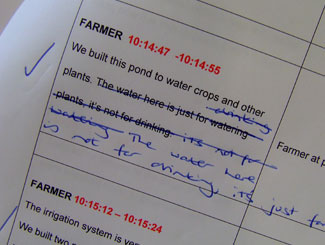 FARMER 10:14:47 -10:14:55
We built this pond to water crops and other
drinking
plants. The water here is just for watering
plants, it's not for drinking. it's not for
watering The water here
is not for drinking, it's just for
Farmer at p
FARMER 10:15:12 – 10:15:24
The irrigation system is ver
We built two